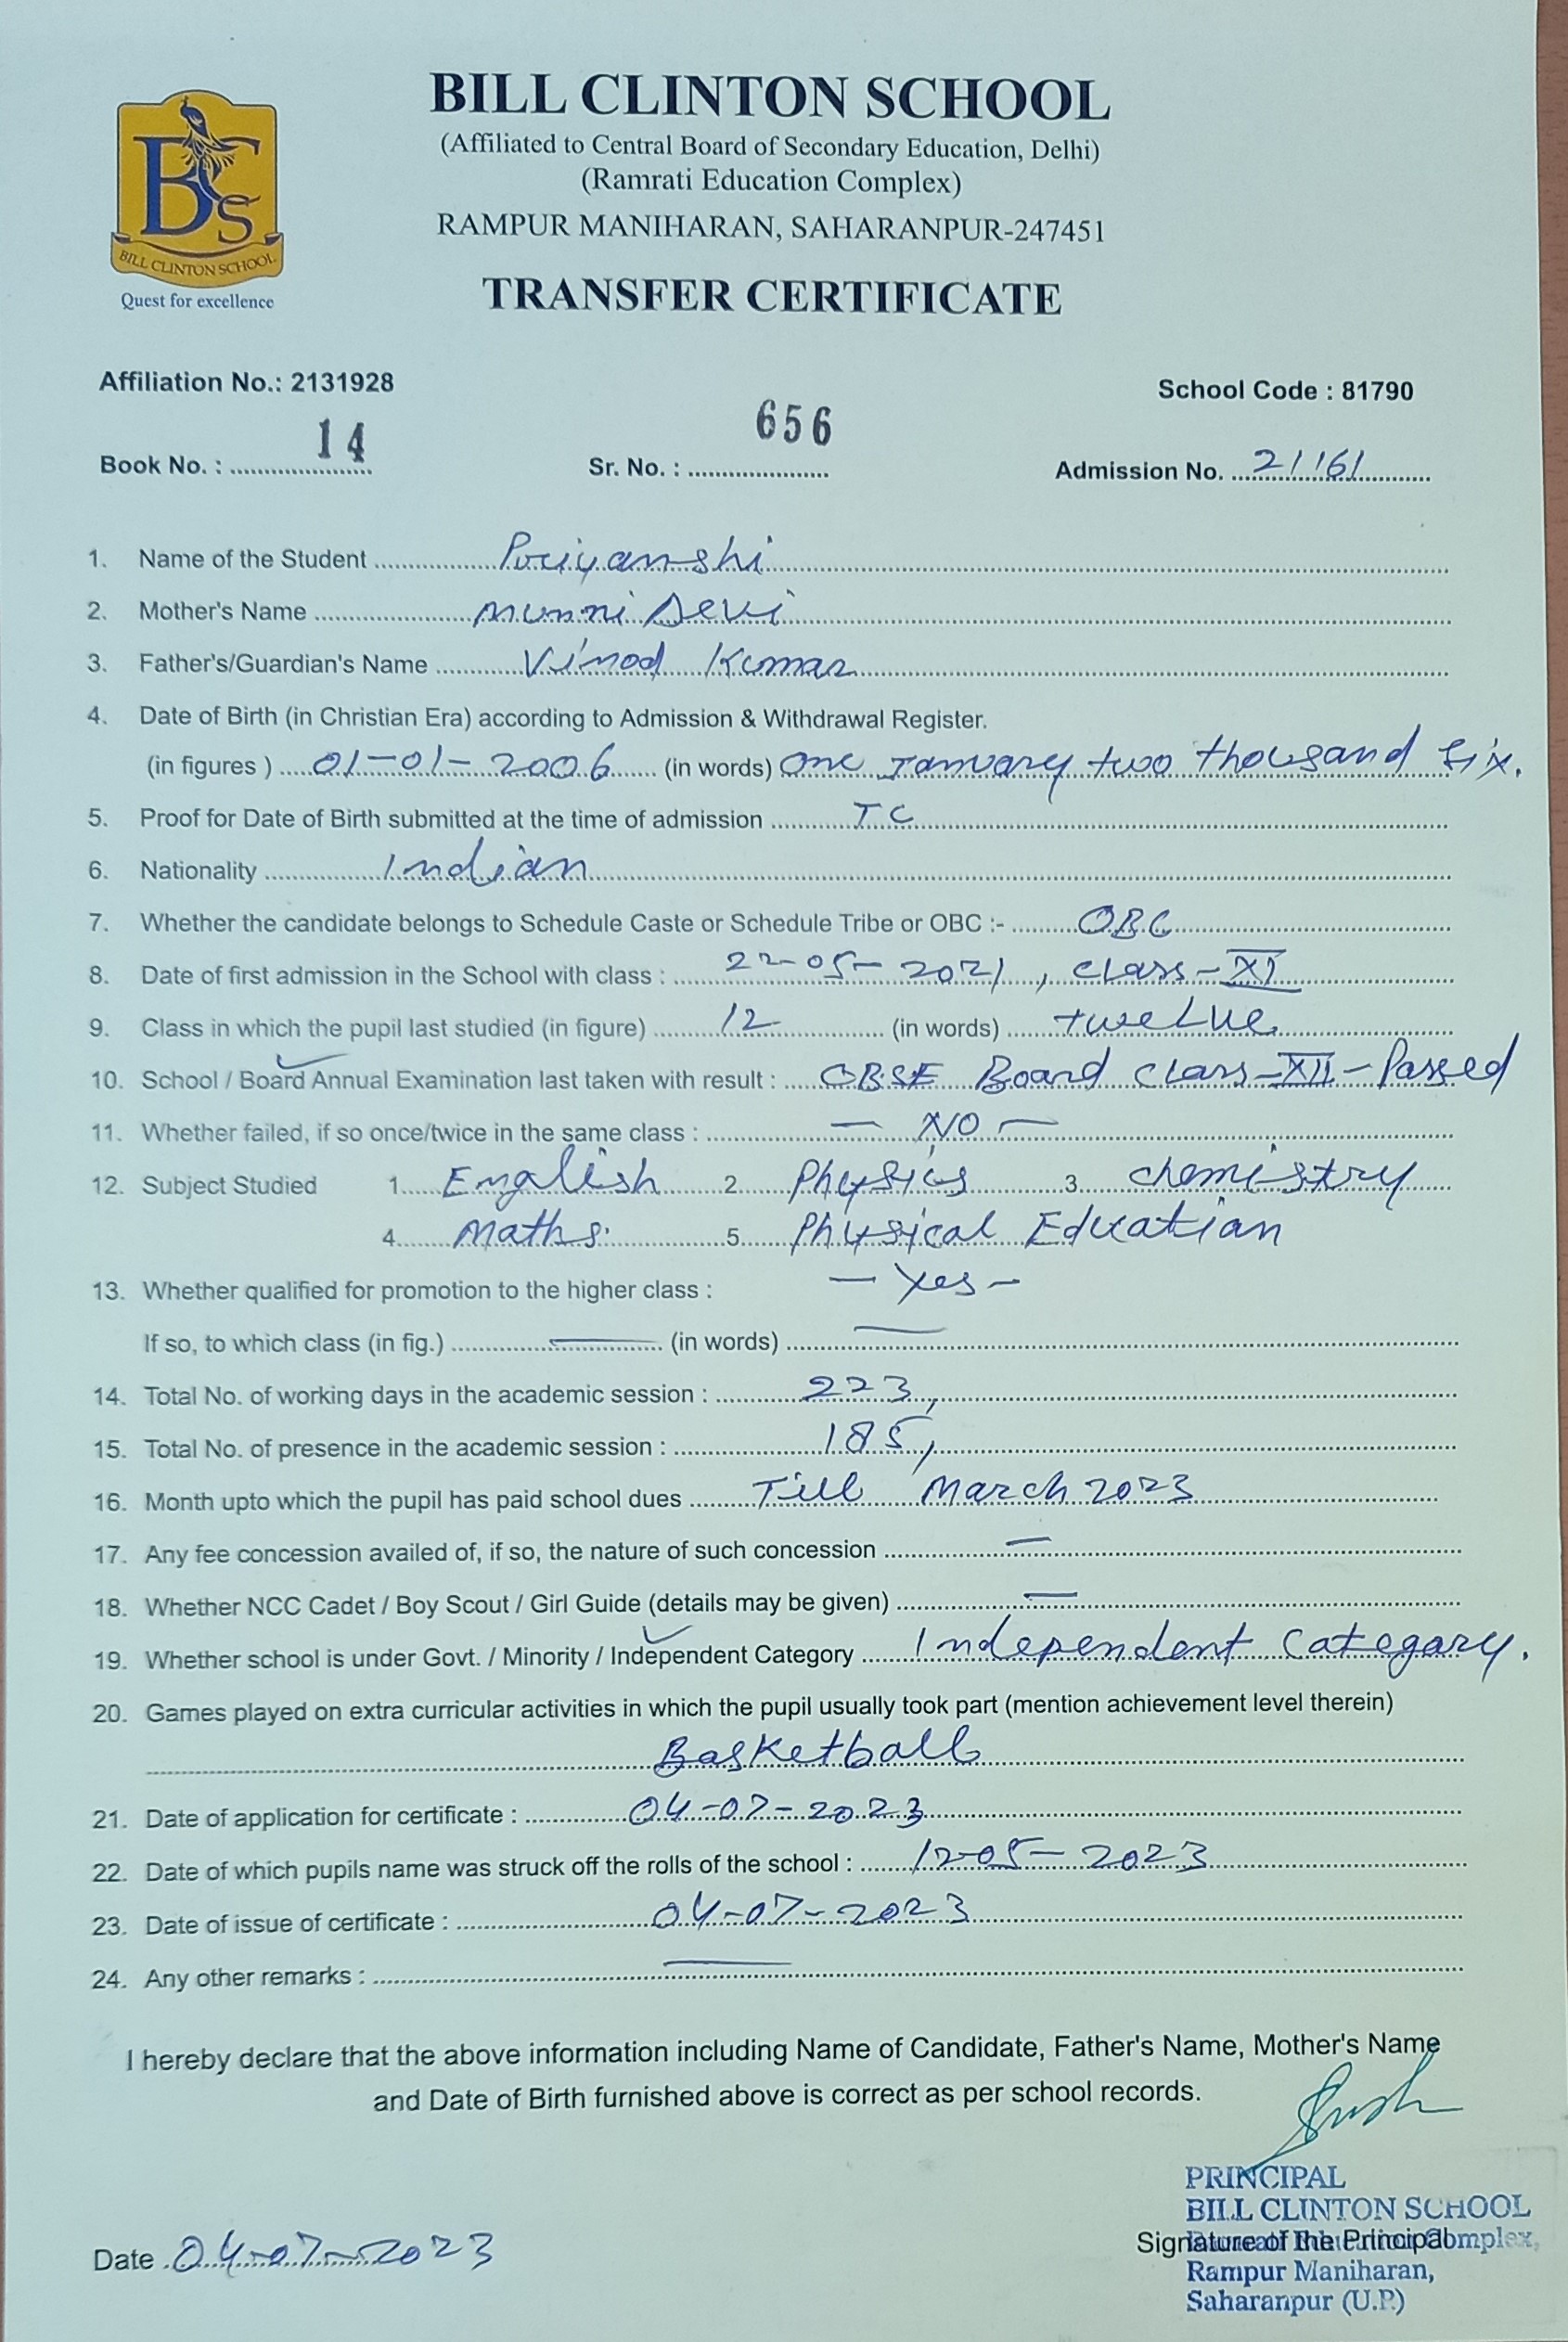 BCS
BILL CLINTON SCHOOL
Quest for excellence
BILL CLINTON SCHOOL
(Affiliated to Central Board of Secondary Education, Delhi)
(Ramrati Education Complex)
RAMPUR MANIHARAN, SAHARANPUR-247451
TRANSFER CERTIFICATE
Affiliation No.: 2131928 School Code : 81790
Book No. : 14 Sr. No. : 656 Admission No. 21161
1. Name of the Student Priyanshi
2. Mother's Name Munni Devi
3. Father's/Guardian's Name Vinod Kumar
4. Date of Birth (in Christian Era) according to Admission & Withdrawal Register.
(in figures ) 01-01-2006 (in words) One January two thousand six.
5. Proof for Date of Birth submitted at the time of admission TC
6. Nationality Indian
7. Whether the candidate belongs to Schedule Caste or Schedule Tribe or OBC :- OBC
8. Date of first admission in the School with class : 22-05-2021, class-XI
9. Class in which the pupil last studied (in figure) 12 (in words) twelve
10. School / Board Annual Examination last taken with result : CBSE Board class-XII-Passed
11. Whether failed, if so once/twice in the same class : — NO —
12. Subject Studied 1. English 2. Physics 3. chemistry
4. Maths. 5. Physical Education
13. Whether qualified for promotion to the higher class : — Yes -
If so, to which class (in fig.) — (in words) —
14. Total No. of working days in the academic session : 223,
15. Total No. of presence in the academic session : 185,
16. Month upto which the pupil has paid school dues Till March 2023
17. Any fee concession availed of, if so, the nature of such concession —
18. Whether NCC Cadet / Boy Scout / Girl Guide (details may be given) —
19. Whether school is under Govt. / Minority / Independent Category Independent Category.
20. Games played on extra curricular activities in which the pupil usually took part (mention achievement level therein)
Basketball
21. Date of application for certificate : 04-07-2023
22. Date of which pupils name was struck off the rolls of the school : 12-05-2023
23. Date of issue of certificate : 04-07-2023
24. Any other remarks : —
I hereby declare that the above information including Name of Candidate, Father's Name, Mother's Name
and Date of Birth furnished above is correct as per school records.
PRINCIPAL
BILL CLINTON SCHOOL
Date 04-07-2023 Signature of the Principal
Complex,
Rampur Maniharan,
Saharanpur (U.P.)